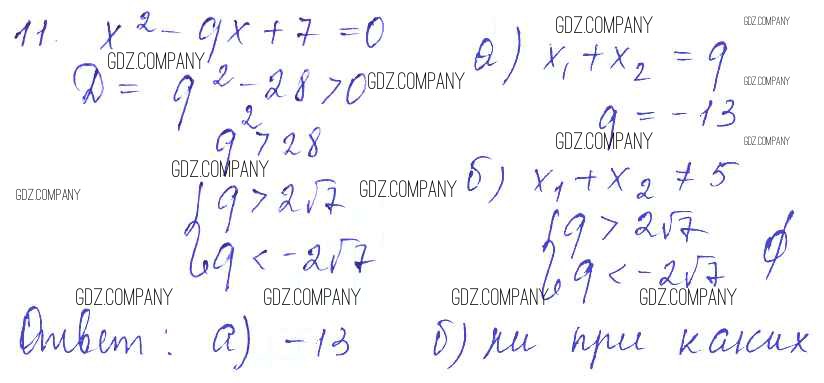 11. x² - qx + 7 = 0
D = q² - 28 > 0
q² > 28
q > 2√7
q < -2√7
а) x₁ + x₂ = q
q = -13
б) x₁ + x₂ ≠ 5
q > 2√7
q < -2√7 ∅
Ответ: а) -13 б) ни при каких
GDZ.COMPANY
GDZ.COMPANY
GDZ.COMPANY
GDZ.COMPANY
GDZ.COMPANY
GDZ.COMPANY
GDZ.COMPANY
GDZ.COMPANY
GDZ.COMPANY
GDZ.COMPANY
GDZ.COMPANY
GDZ.COMPANY
GDZ.COMPANY
GDZ.COMPANY